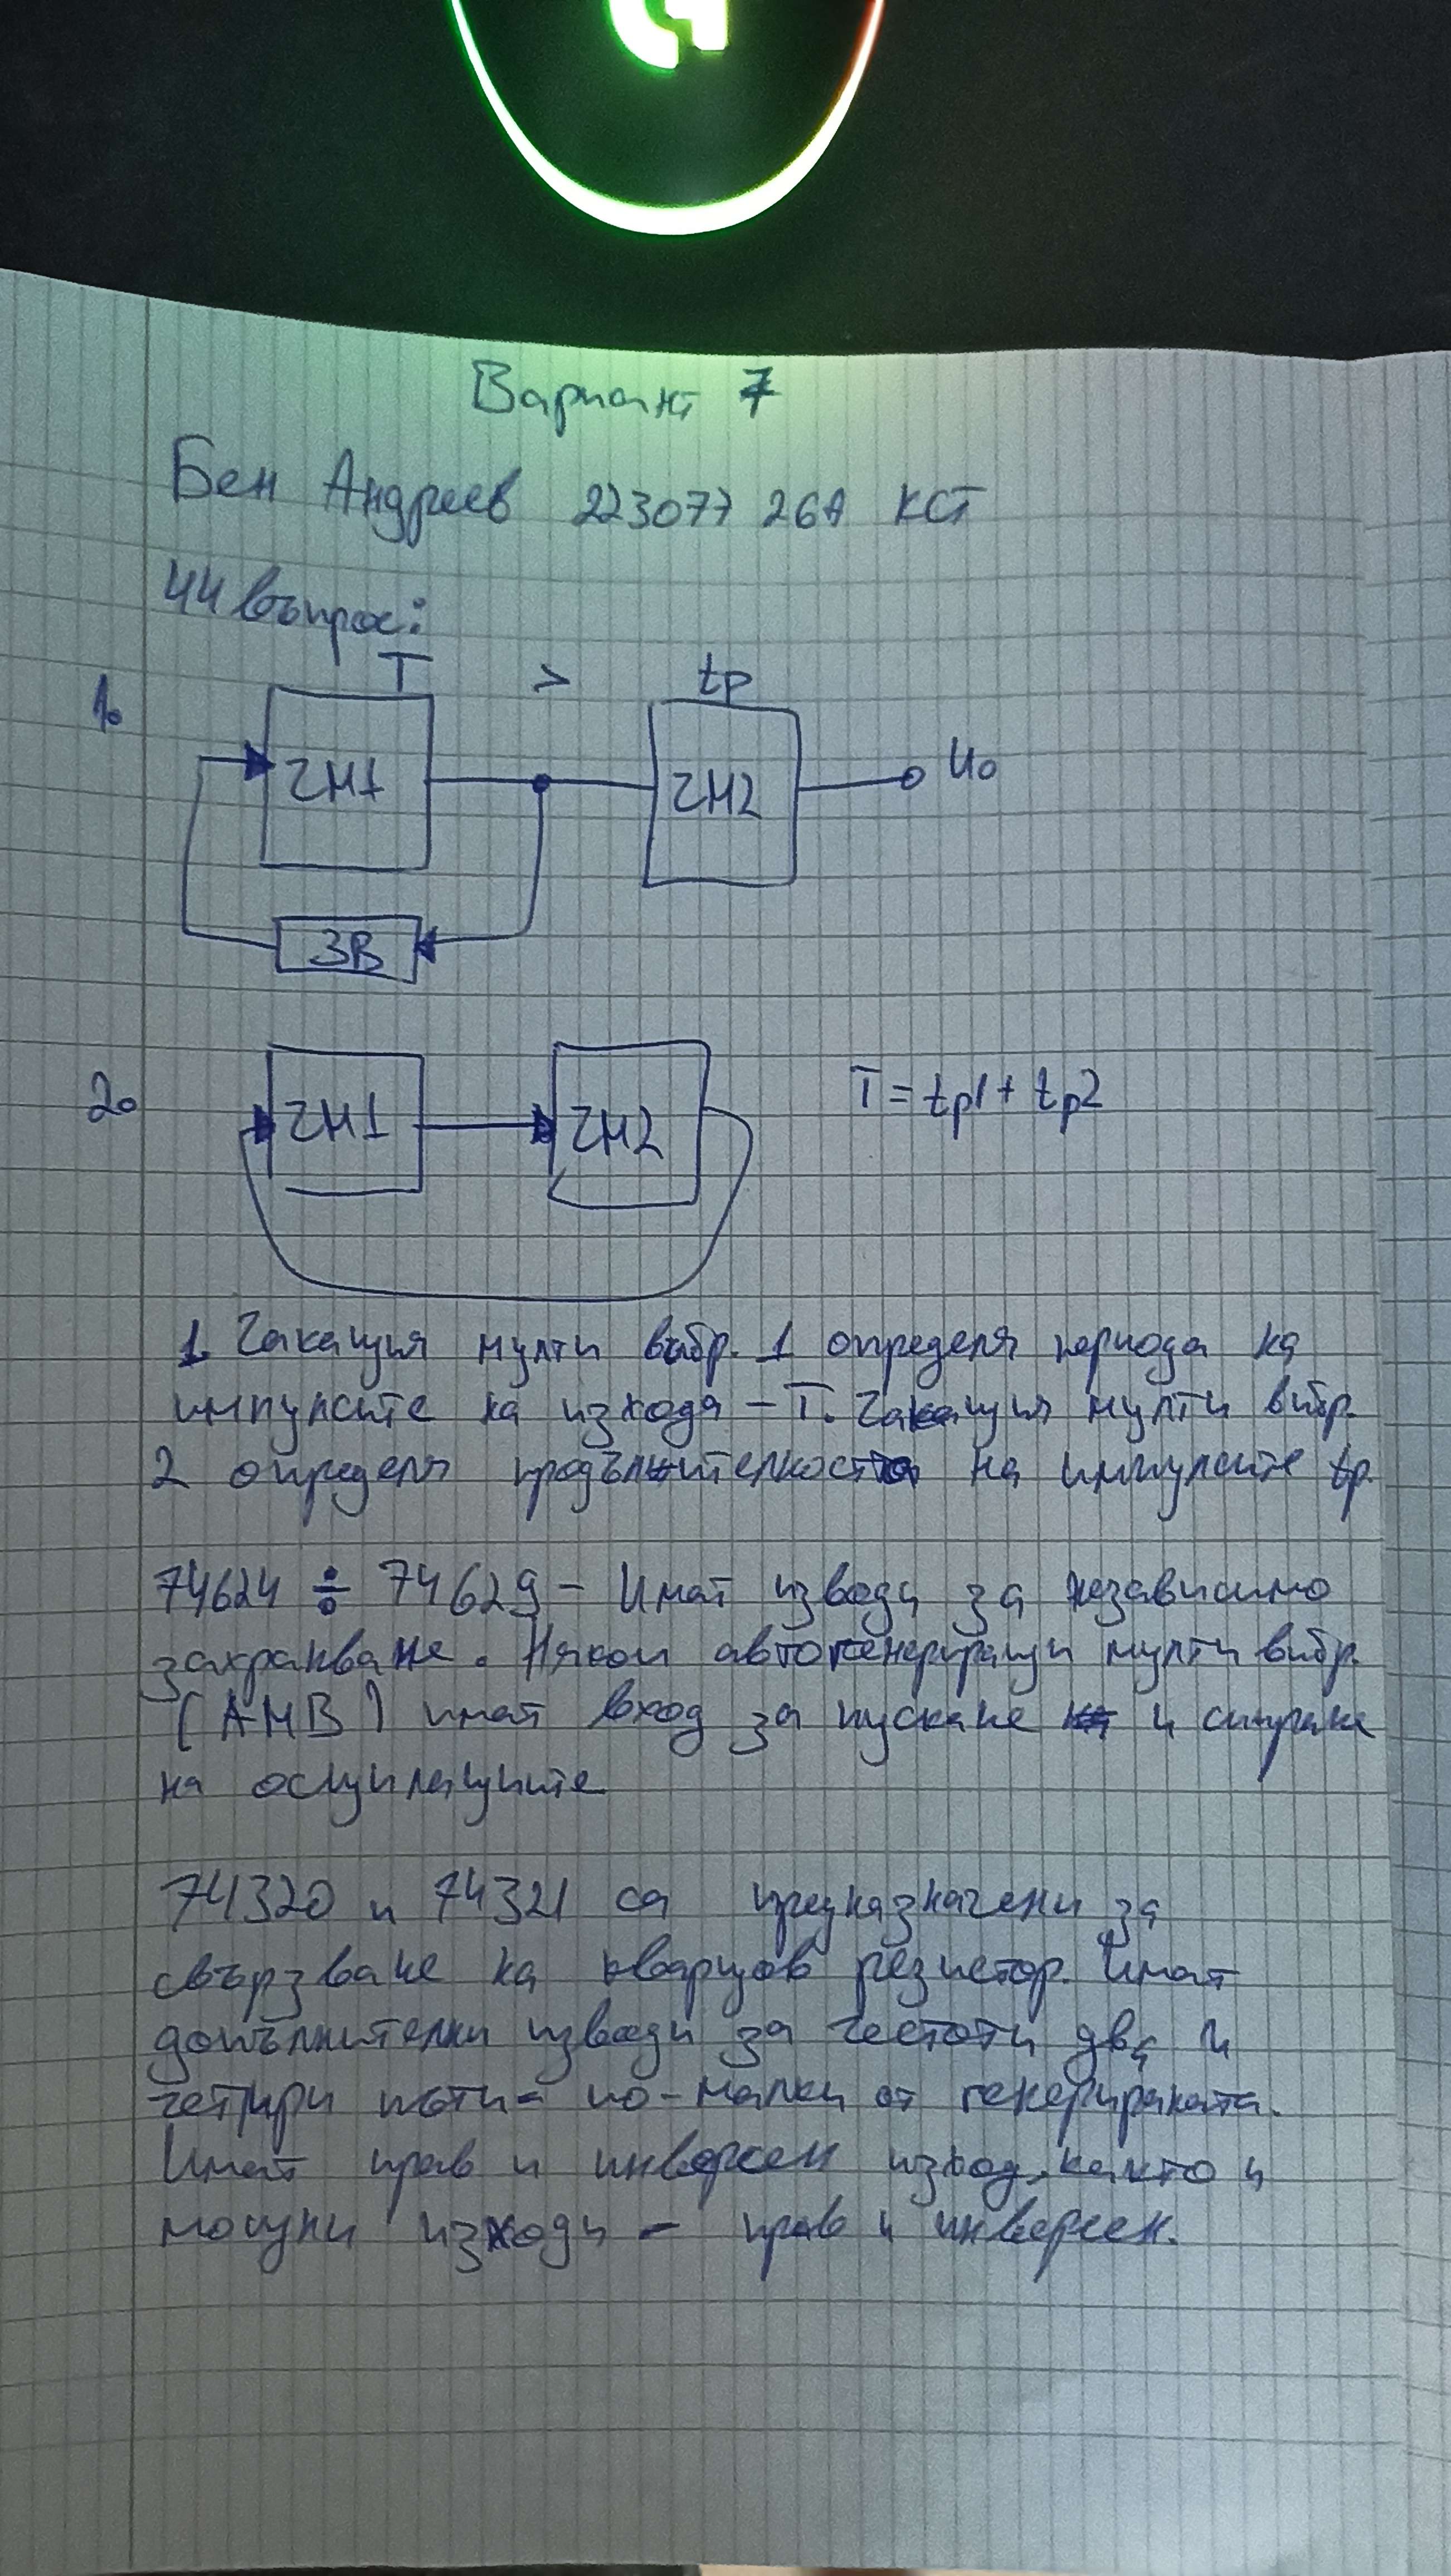 Вариант 7
Бен Андреев 223077 26А КСТ
44 въпрос:
T > tp
1.
ЧМ1 ЧМ2 U0
ЗВ
2.
ЧМ1 ЧМ2 T = tp1 + tp2
1. Чакащия мулти вибр. 1 определя периода на
импулсите на изхода – T. Чакащия мулти вибр.
2 определя продължителността на импулсите tp.
74624 ÷ 74629 – Имат изводи за независимо
захранване. Някои автогенериращи мулти вибр.
(АМВ) имат вход за пускане и спиране
на осцилациите
74320 и 74321 са предназначени за
свързване на кварцов резистор. Имат
допълнителни изводи за честоти два и
четири пъти по-малки от генерираната.
Имат прав и инверсен изход, както и
мощни изходи – прав и инверсен.